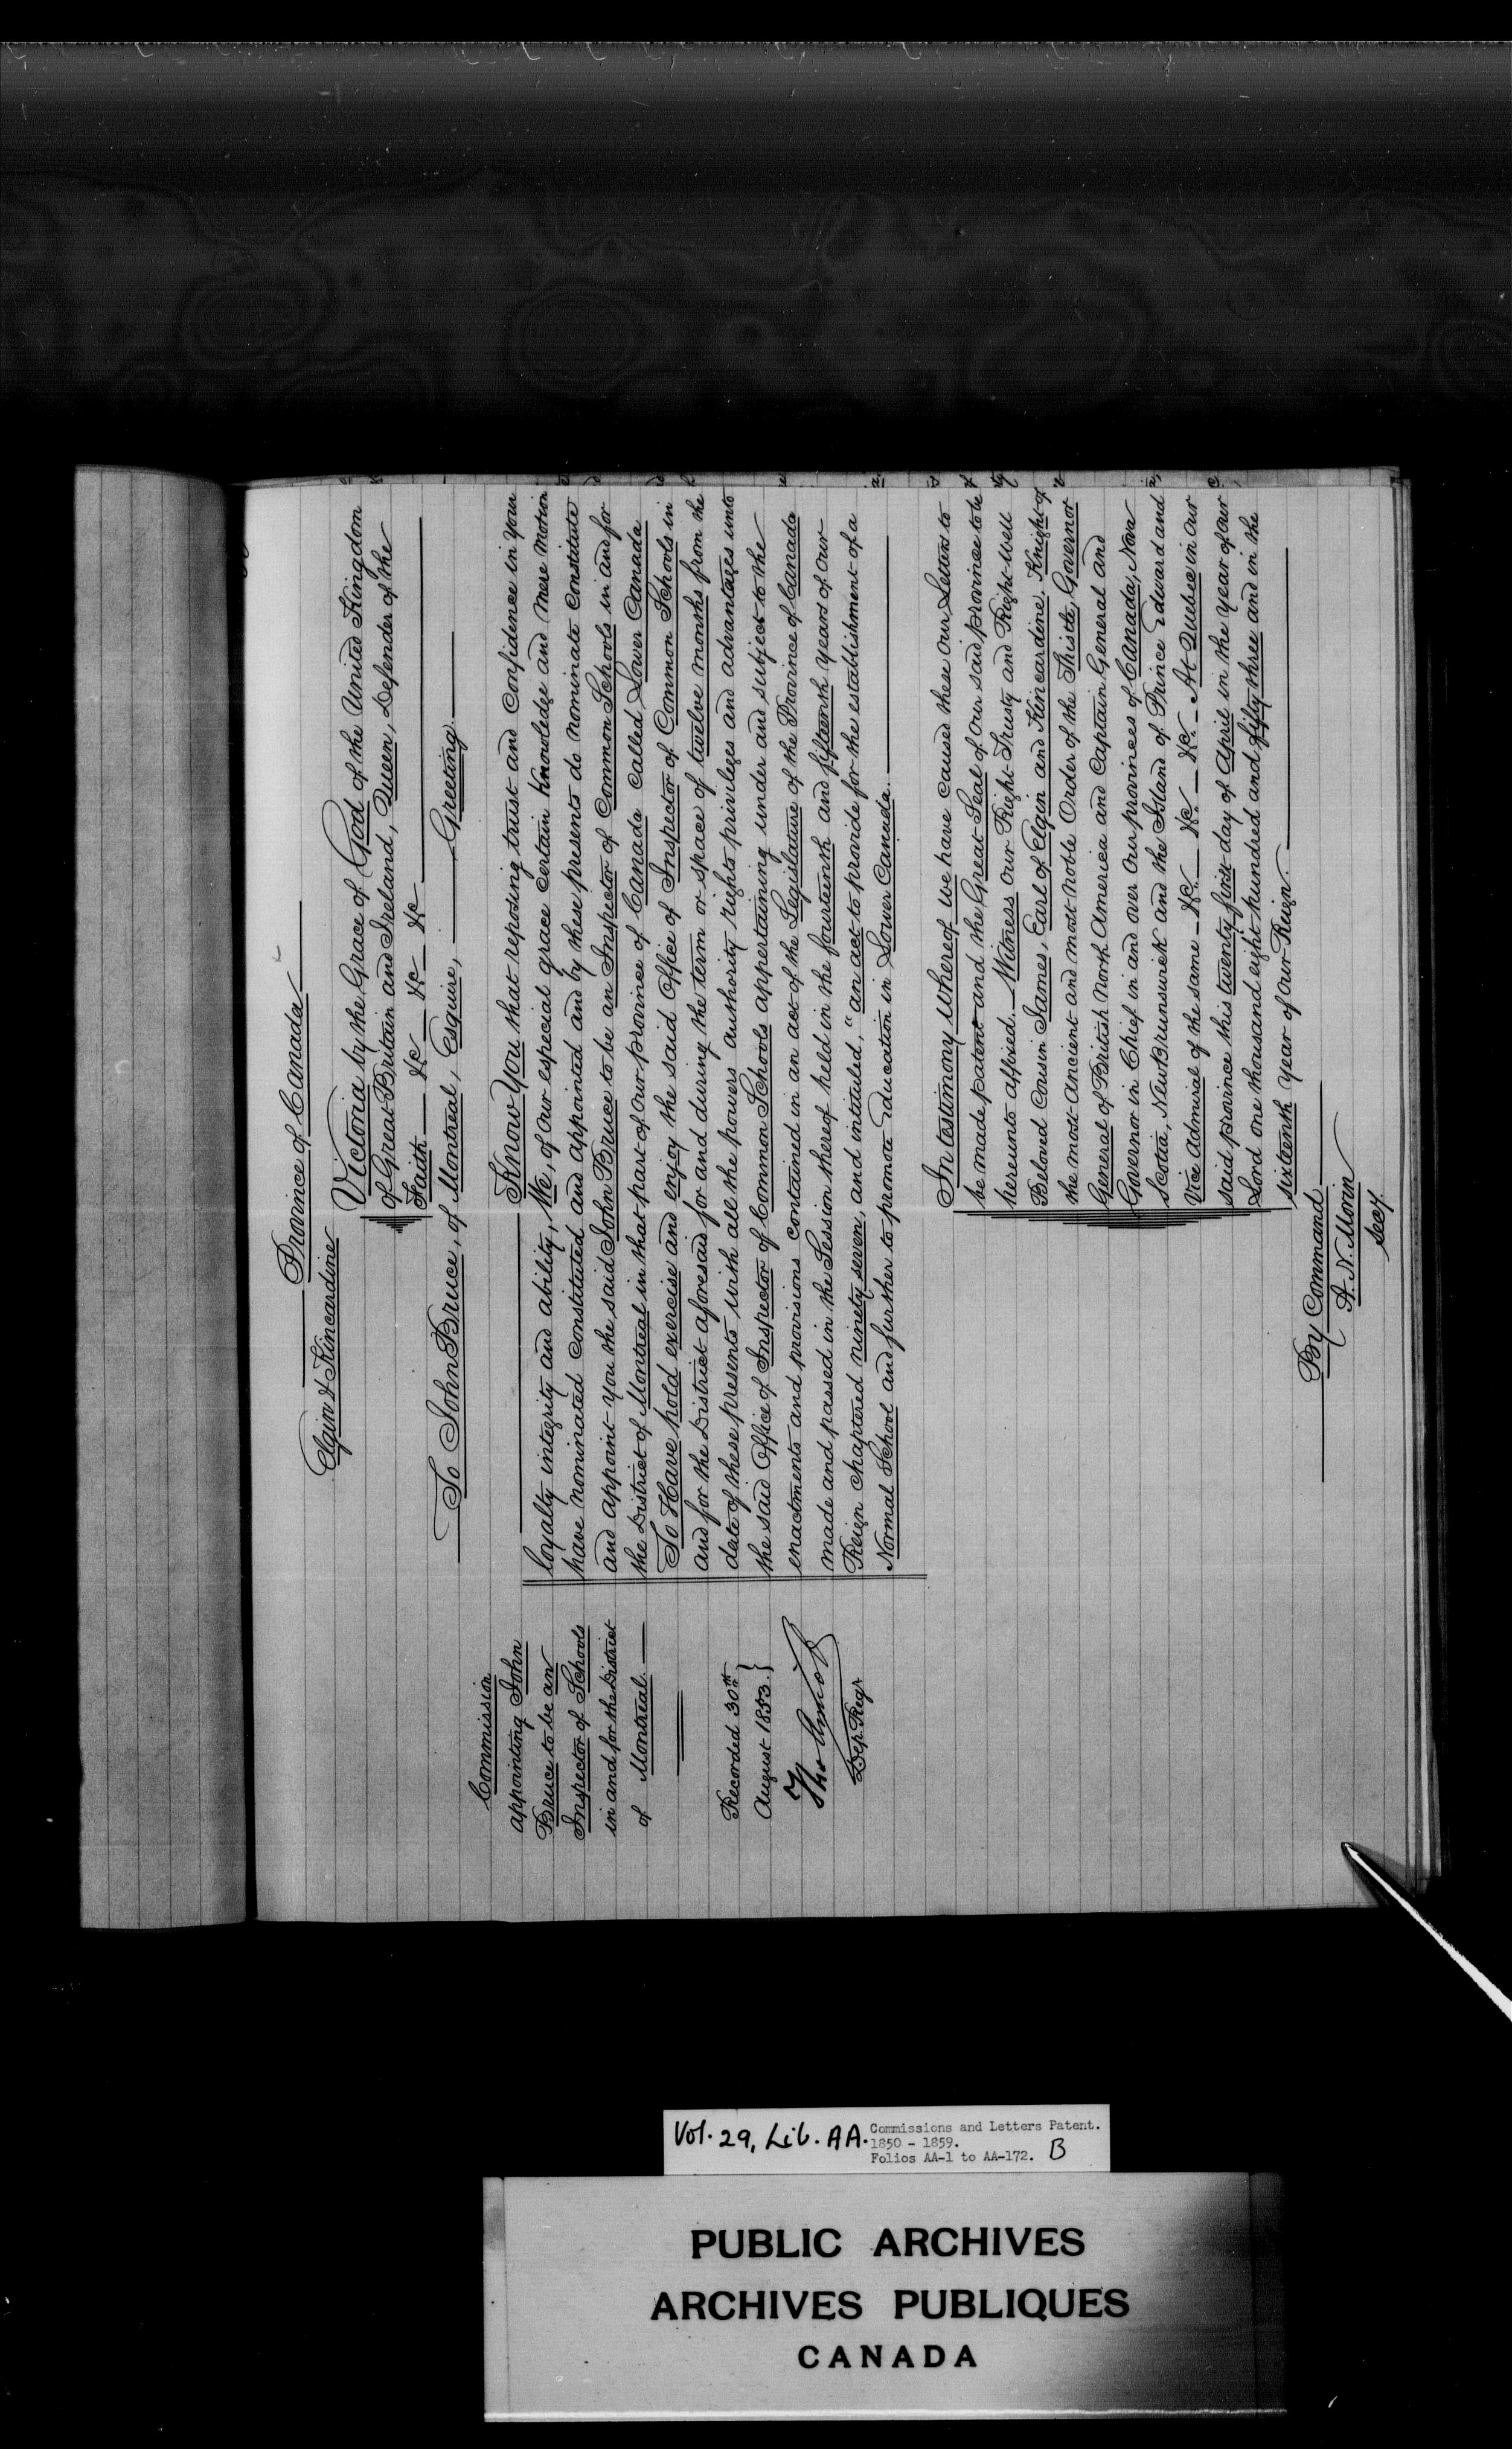 Province of Canada
Elgin & Kincardine
Victoria by the Grace of God of the United Kingdom
of Great Britain and Ireland, Queen, Defender of the
Faith &c &c &c
To John Bruce, of Montreal, Esquire, Greeting.
Know You that reposing trust and Confidence in your
loyalty integrity and ability, We, of Our especial grace Certain Knowledge and Mere Motion
have nominated Constituted and appointed and by these presents do nominate Constitute
and appoint you the said John Bruce to be an Inspector of Common Schools in and for
the District of Montreal in that part of Our province of Canada called Lower Canada
To Have hold exercise and enjoy the said Office of Inspector of Common Schools in
and for the District aforesaid for and during the term or space of twelve months from the
date of these presents with all the powers authority rights privileges and advantages unto
the said Office of Inspector of Common Schools appertaining under and subject to the
enactments and provisions contained in an act of the Legislature of the Province of Canada
made and passed in the Session thereof held in the fourteenth and fifteenth years of Our
Reign chaptered ninety seven, and intituled, "an act to provide for the establishment of a
Normal School and further to promote Education in Lower Canada.
Commission
appointing John
Bruce to be an
Inspector of Schools
in and for the District
of Montreal.
Recorded 30th
August 1853.
Dep. Regr
In testimony Whereof We have caused these Our Letters to
be made patent and the Great Seal of Our said province to be
hereunto affixed. Witness Our Right Trusty and Right Well
Beloved Cousin James, Earl of Elgin and Kincardine, Knight of
the most Ancient and most Noble Order of the Thistle, Governor
General of British North America and Captain General and
Governor in Chief in and over Our provinces of Canada, Nova
Scotia, New Brunswick and the Island of Prince Edward and
Vice Admiral of the same &c. &c. &c. At Quebec in Our
said province this twenty first day of April in the year of Our
Lord one thousand eight hundred and fifty three and in the
sixteenth year of Our Reign.
By Command
A. N. Morin
Secy
Vol. 29, Lib. AA. Commissions and Letters Patent.
1850 - 1859.
Folios AA-1 to AA-172. B
PUBLIC ARCHIVES
ARCHIVES PUBLIQUES
CANADA